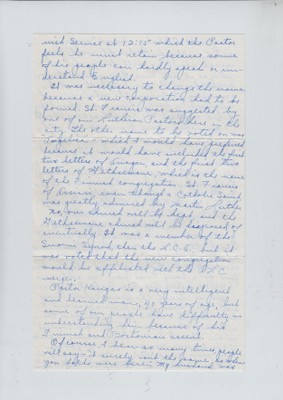 nish Service at 12:15 which the Pastor
feels he must retain because some
of his people can hardly speak or un-
derstand English.
It was necessary to change the name
because a new corporation had to be
formed. St. Francis was suggested by
one of our Lutheran Pastors here in the
city. The other name to be voted on was
which I would have preferred
because it would have included the first
two letters of and the first two
letters of Gethsemane, which is the name
of the Finnish congregation. St. Francis
of Assisi, even though a Catholic Saint
was greatly admired by Martin Luther.
No, our church will be kept, and the
Gethsemane church will be disposed of
eventually. It was a member of the
Suomi Synod, then the L.C.A. but it
was voted that the new congregation
would be affiliated with the
merger.
Pastor Kangas is a very intelligent
and learned man, 42 years of age, but
some of our people have difficulty in
understanding him because of his
Finnish and Bostonian accent.
Of course I hear so many times people
will say - it surely isn't the same as when
you folks were here. My husband was